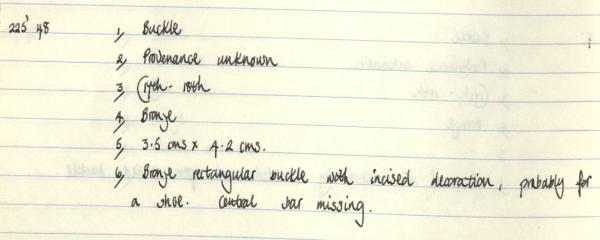 225' 48 1, Buckle
2, Provenance unknown
3, C17th - 18th
4, Bronze
5, 3.5 cms x 4.2 cms.
6, Bronze rectangular buckle with incised decoration, probably for
a shoe. Central bar missing.